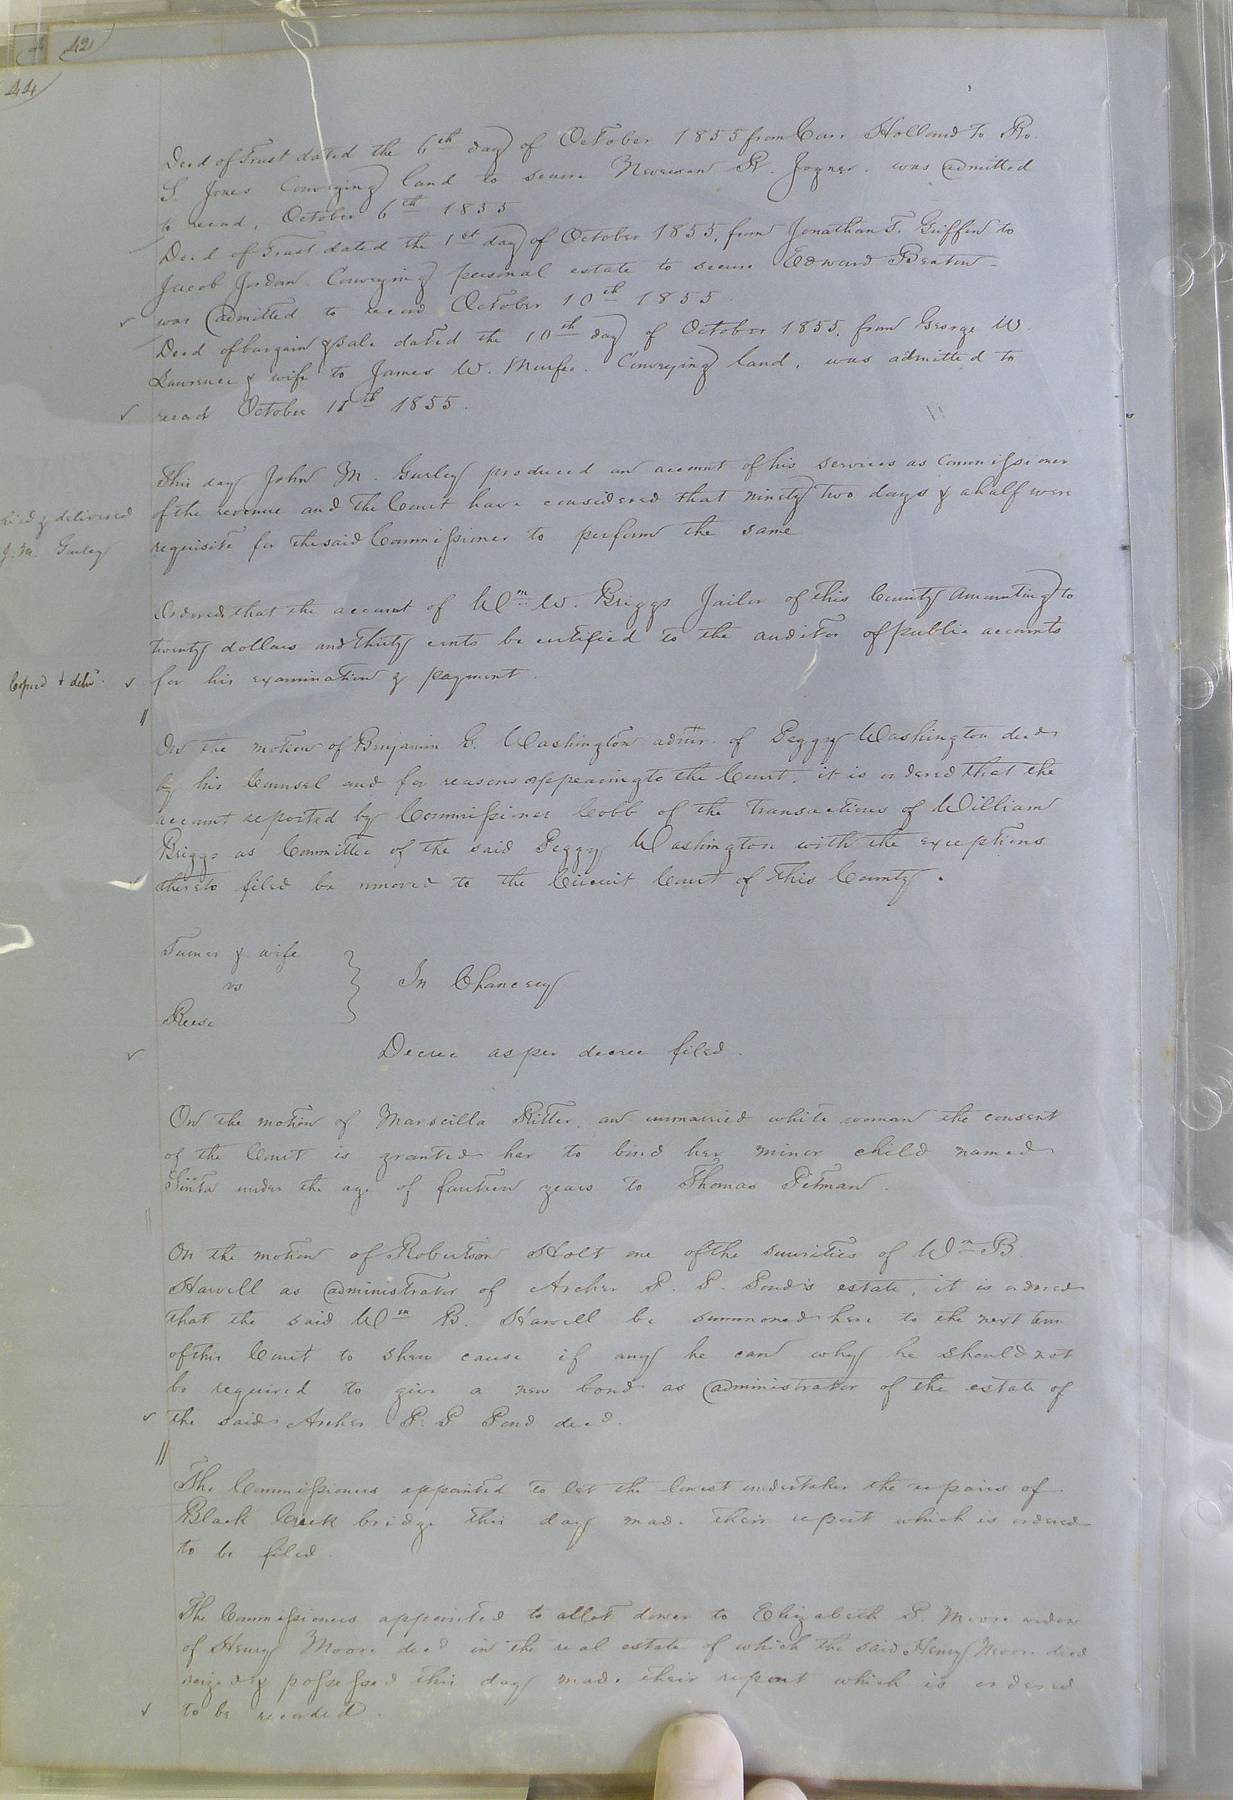 42
44
Deed of Trust dated the 6th day of October 1855 from Carr Holland to Ro.
S. Jones Conveying land to secure Newsom R. Joyner. was admitted
to record, October 6th 1855
Deed of Trust dated the 1st day of October 1855, from Jonathan T. Griffin to
Jacob Jordan Conveying personal estate to secure Edward Beaton
was admitted to record October 10th 1855
Deed of bargain & sale dated the 10th day of October 1855, from George W.
Lawrence & wife to James W. Murfee. Conveying land, was admitted to
record October 15th 1855.
This day John M. Gurley produced an account of his services as Commissioner
of the revenue and the Court have considered that ninety two days & a half were
requisite for the said Commissioner to perform the same
& delivered
J. M. Gurley
Ordered that the account of Wm W. Briggs Jailor of this County amounting to
twenty dollars and thirty cents be certified to the auditor of public accounts
for his examination & payment.
Copied & delivd.
On the motion of Benjamin E. Washington admr. of Peggy Washington decd
by his Counsel and for reasons appearing to the Court. it is ordered that the
account reported by Commissioner Cobb of the transactions of William
Briggs as Committee of the said Peggy Washington with the exceptions
thereto filed be removed to the Circuit Court of this County.
Turner & wife
vs
In Chancery
Reese
Decree as per decree filed.
On the motion of Marscilla Ritter, an unmarried white woman the consent
of the Court is granted her to bind her minor child named
under the age of fourteen years to Thomas Pitman.
On the motion of Robertson Holt one of the securities of Wm B
Harvell as administrator of Archer P. P. Pond's estate, it is ordered
that the said Wm B. Harvell be summoned here to the next term
of this Court to shew cause if any he can why he should not
be required to give a new bond as administrator of the estate of
the said Archer P. P. Pond decd.
The Commissioners appointed to let the lowest undertaker the repairs of
Black Creek bridge this day made their report which is ordered
to be filed.
The Commissioners appointed to allot dower to Elizabeth P. Moore widow
of Henry Moore decd in the real estate of which the said Henry Moore died
seized & possessed this day made their report which is ordered
to be recorded.